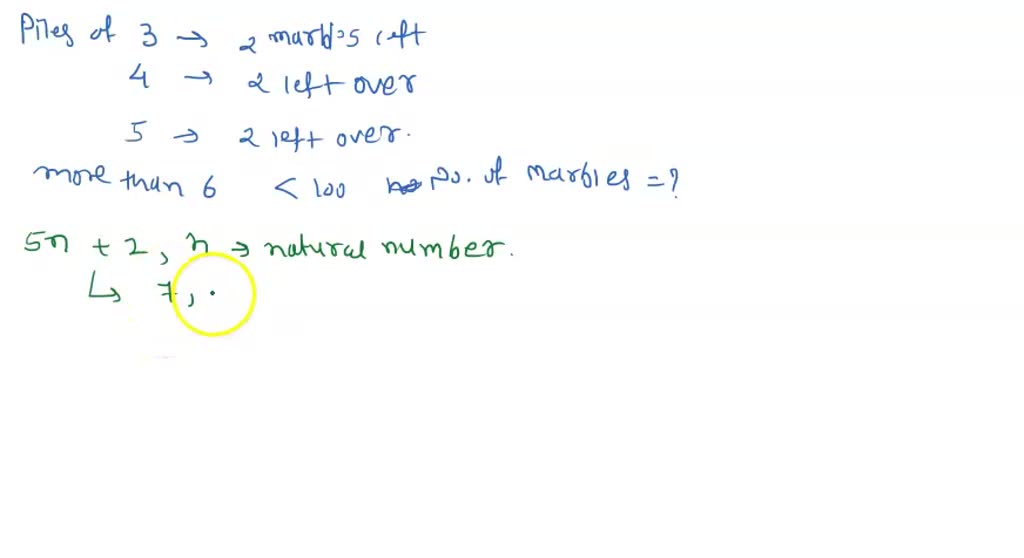 Piles of 3 → 2 marbles left
4 → 2 left over
5 → 2 left over.
more than 6 < 100 No. of marbles = ?
5n + 2, n → natural number.
↳ 7, .